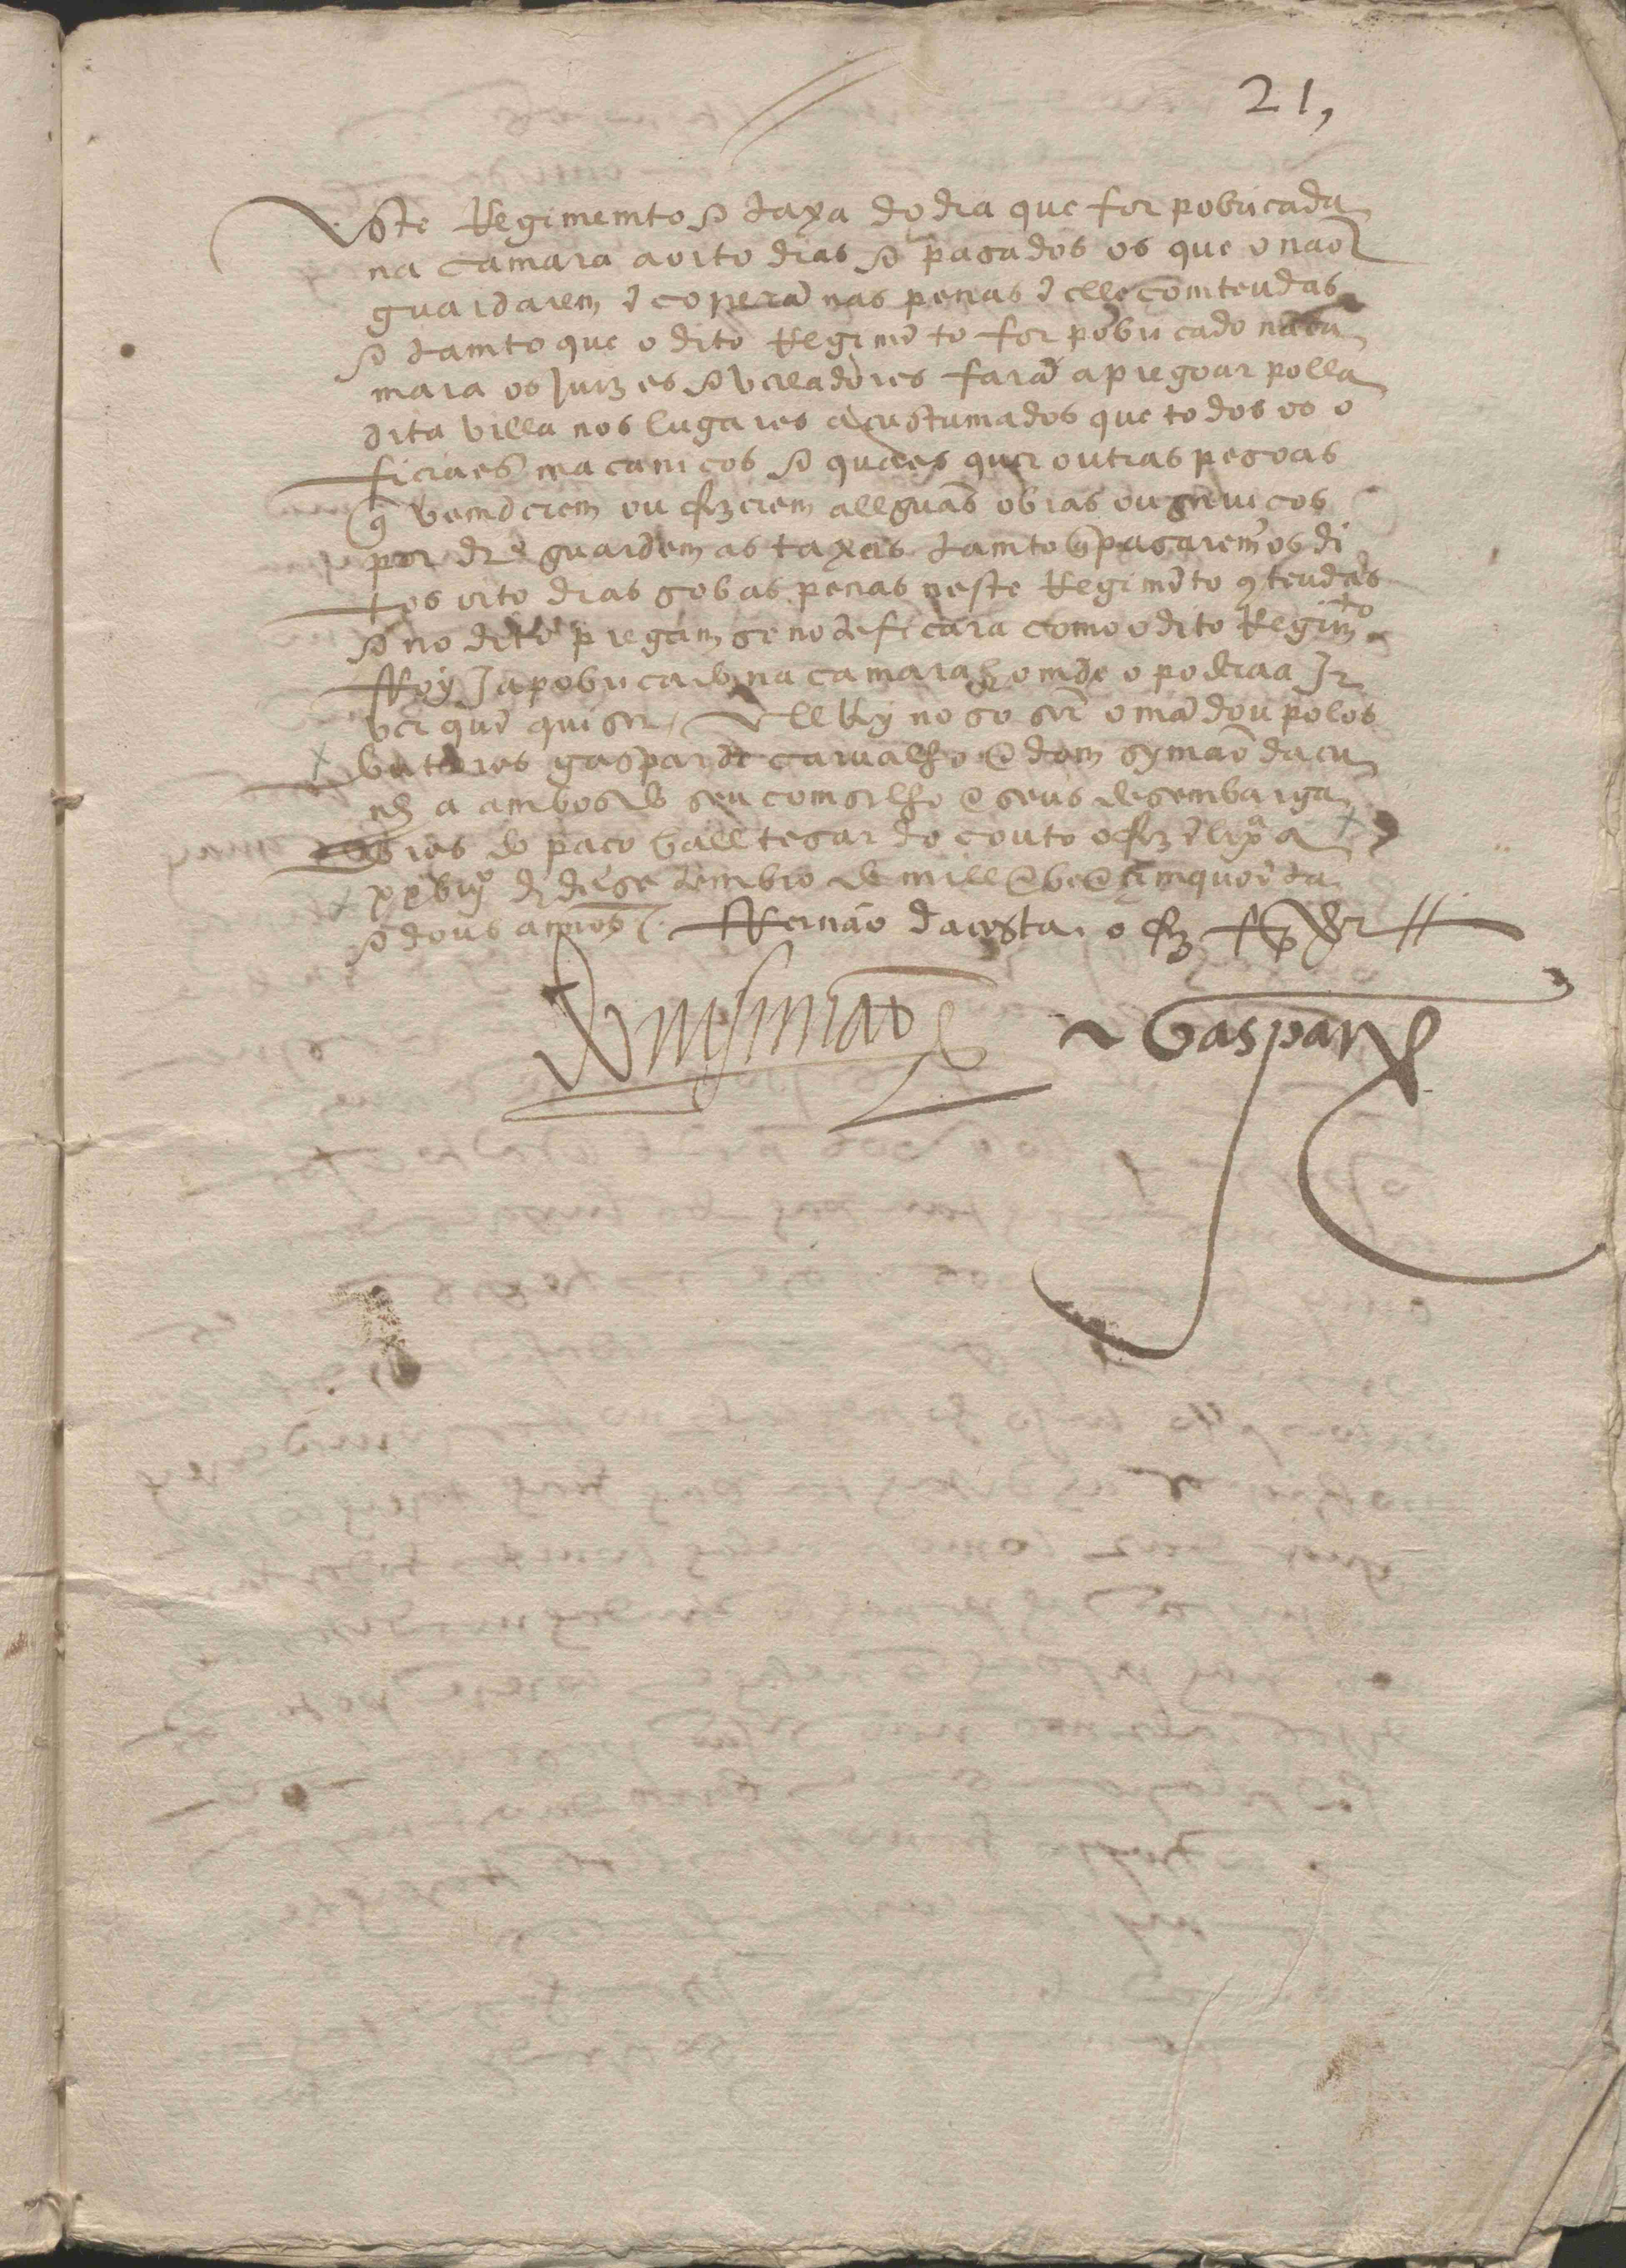 21,
Este Regimemto e taxa do dia que for pobricada
na camara a oito dias e pasados os que o não
guardarem ẽcorrerã nas penas ẽ elle comteudas
e tamto que o dito Regimẽto for pobricado na ca
mara os Juizes e vereadores farã apregoar polla
dita villa nos lugares acustumados que todos os o
ficiaes macanicos e quaes quer outras pesoas
q̃ vemderem ou fizerem allguãs obras ou serviços
por drº guardem as taxas tamto q̃ pasarem os di
tos oito dias sob as penas neste Regimẽto cõteudas
e no dito pregam se noteficara como o dito Regimto
foy Ja pobricado na camara homde o poderaa Ir
ver quẽ quiser / Ell Rey noso sñor o mãdou polos
doutores gaspar de carvalho e dom symão dacu
nha ambos do seu comselho e seus desembarga
dores do paço balltesar do couto o fez ẽ lixª a
xxbiij de desembro de mill e bc e cimquoẽta
e dous annos / Fernão dacosta o fiz esprever //
Dom simaõ Gaspar